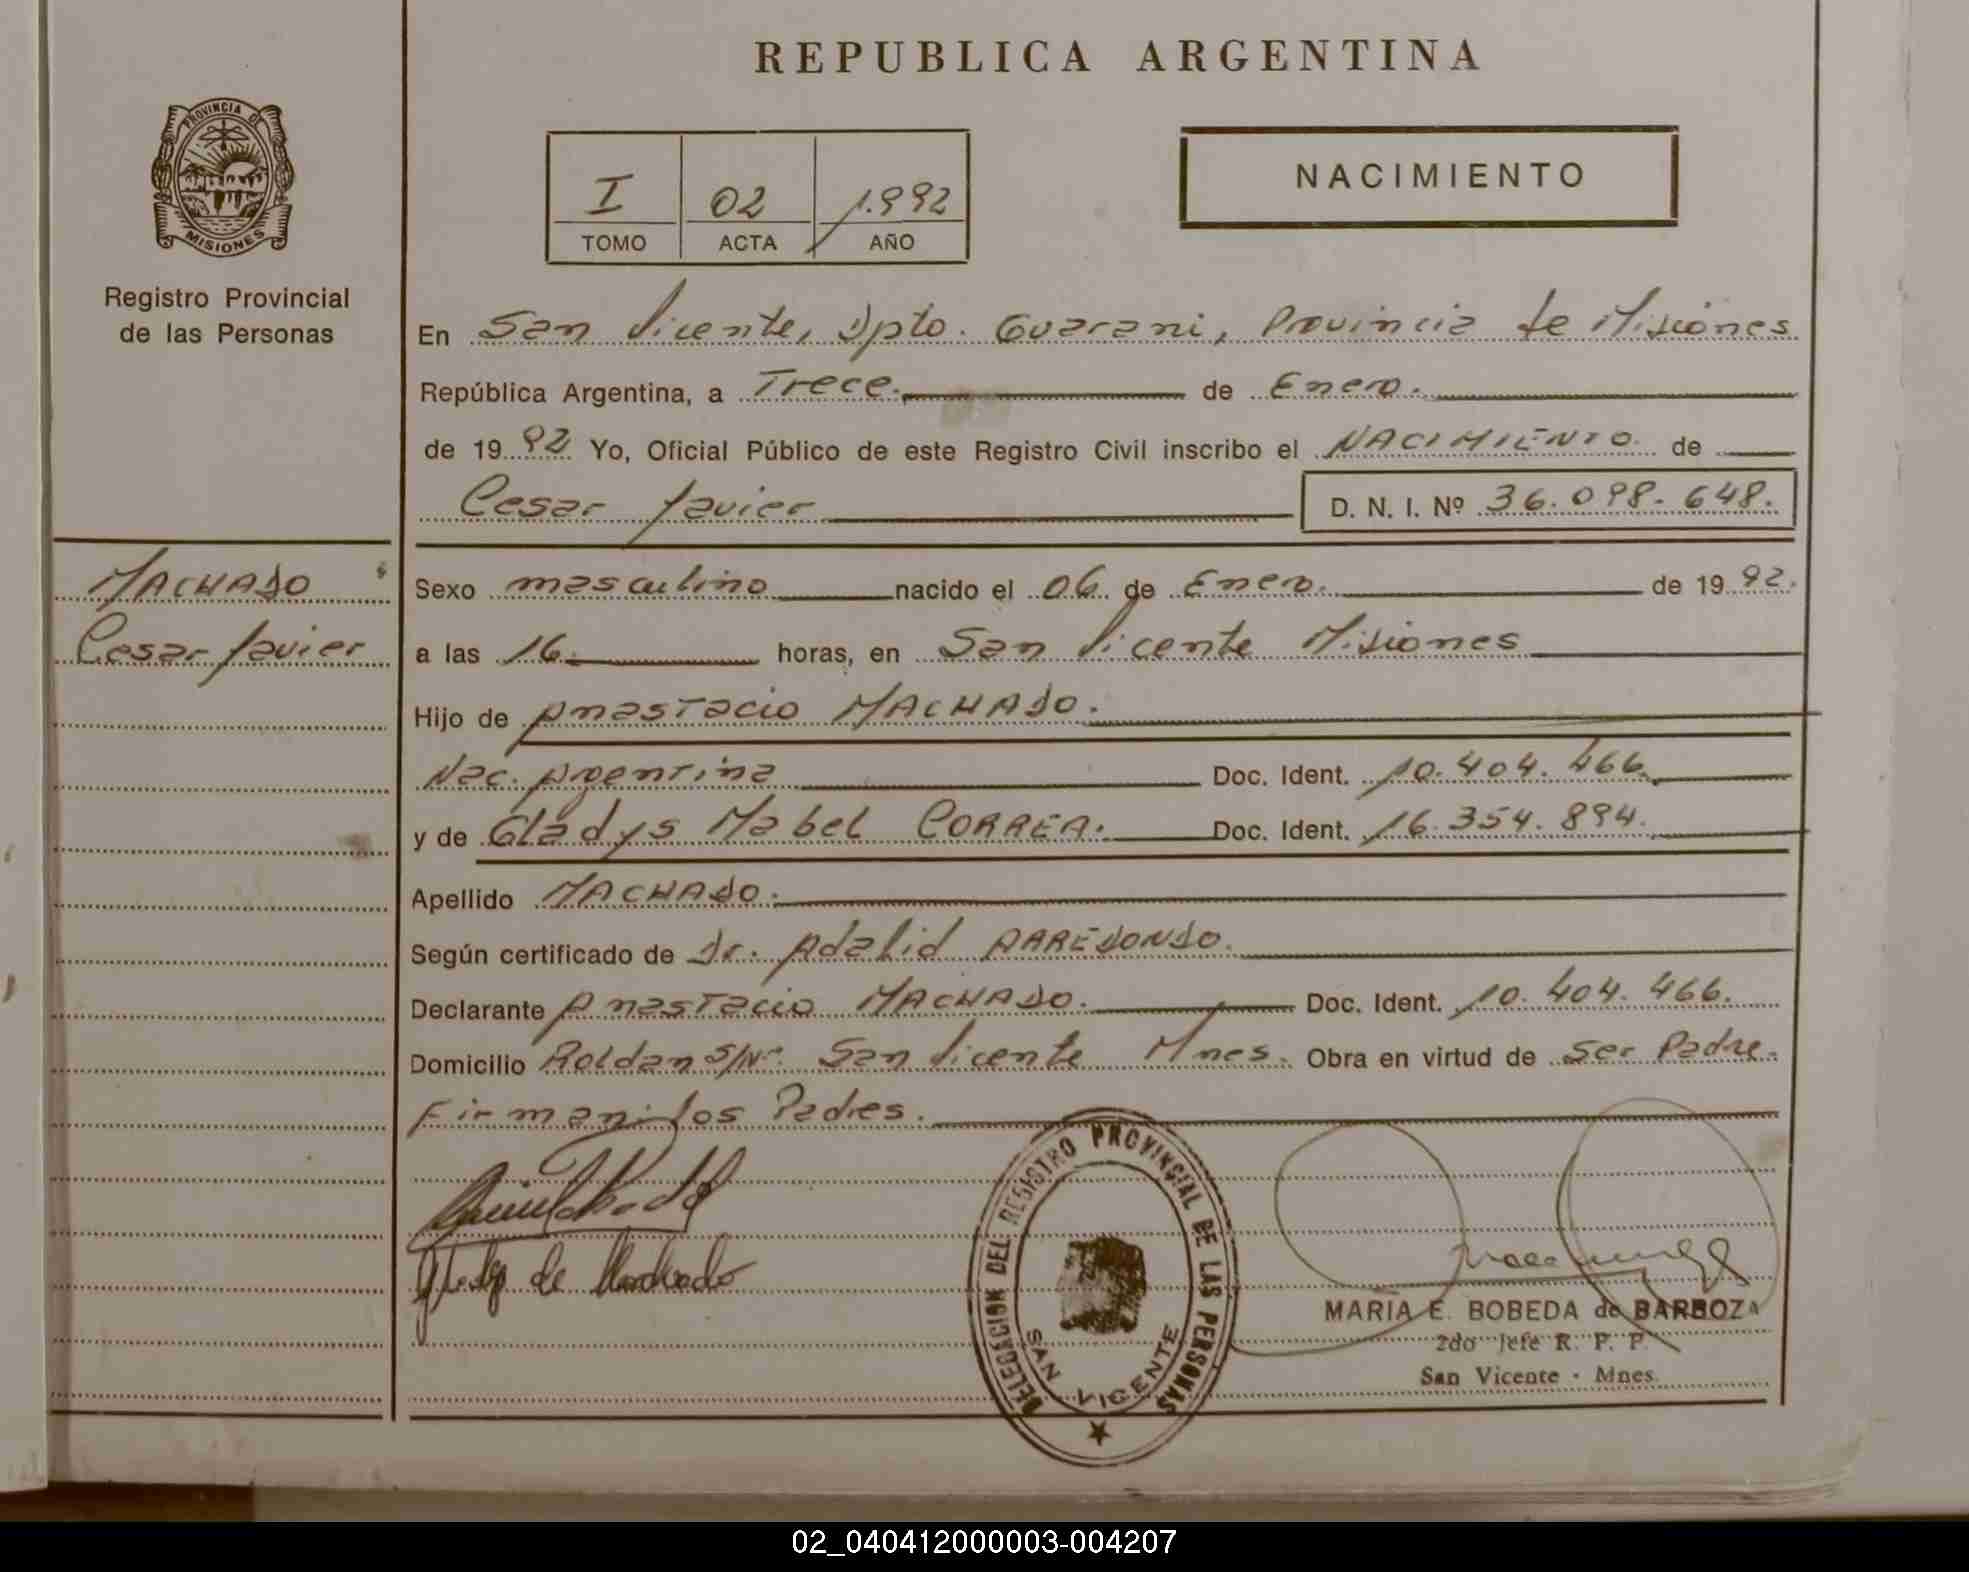 REPUBLICA ARGENTINA
PROVINCIA DE
MISIONES
Registro Provincial
de las Personas
I 02 1.992
TOMO ACTA AÑO
NACIMIENTO
En San Vicente, Dpto. Guarani, Provincia de Misiones
República Argentina, a Trece. de Enero.
de 19 92 Yo, Oficial Público de este Registro Civil inscribo el NACIMIENTO de
Cesar Javier D. N. I. Nº 36.098.648.
MACHADO
Cesar Javier
Sexo masculino nacido el 06 de Enero. de 19 92.
a las 16 horas, en San Vicente Misiones
Hijo de Anastacio MACHADO.
Nac. Argentina Doc. Ident. 10.404.466
y de Gladys Mabel CORREA. Doc. Ident. 16.354.894.
Apellido MACHADO.
Según certificado de Dr. Adalid ARREDONDO.
Declarante Anastacio MACHADO. Doc. Ident. 10.404.466.
Domicilio Roldan S/Nº. San Vicente Mnes. Obra en virtud de Ser Padre.
Firman: los Padres.
Gladys de Machado
DELEGACION DEL REGISTRO PROVINCIAL DE LAS PERSONAS
SAN VICENTE
MARIA E. BOBEDA de BARBOZA
2do Jefe R. P. P.
San Vicente - Mnes.
02_040412000003-004207